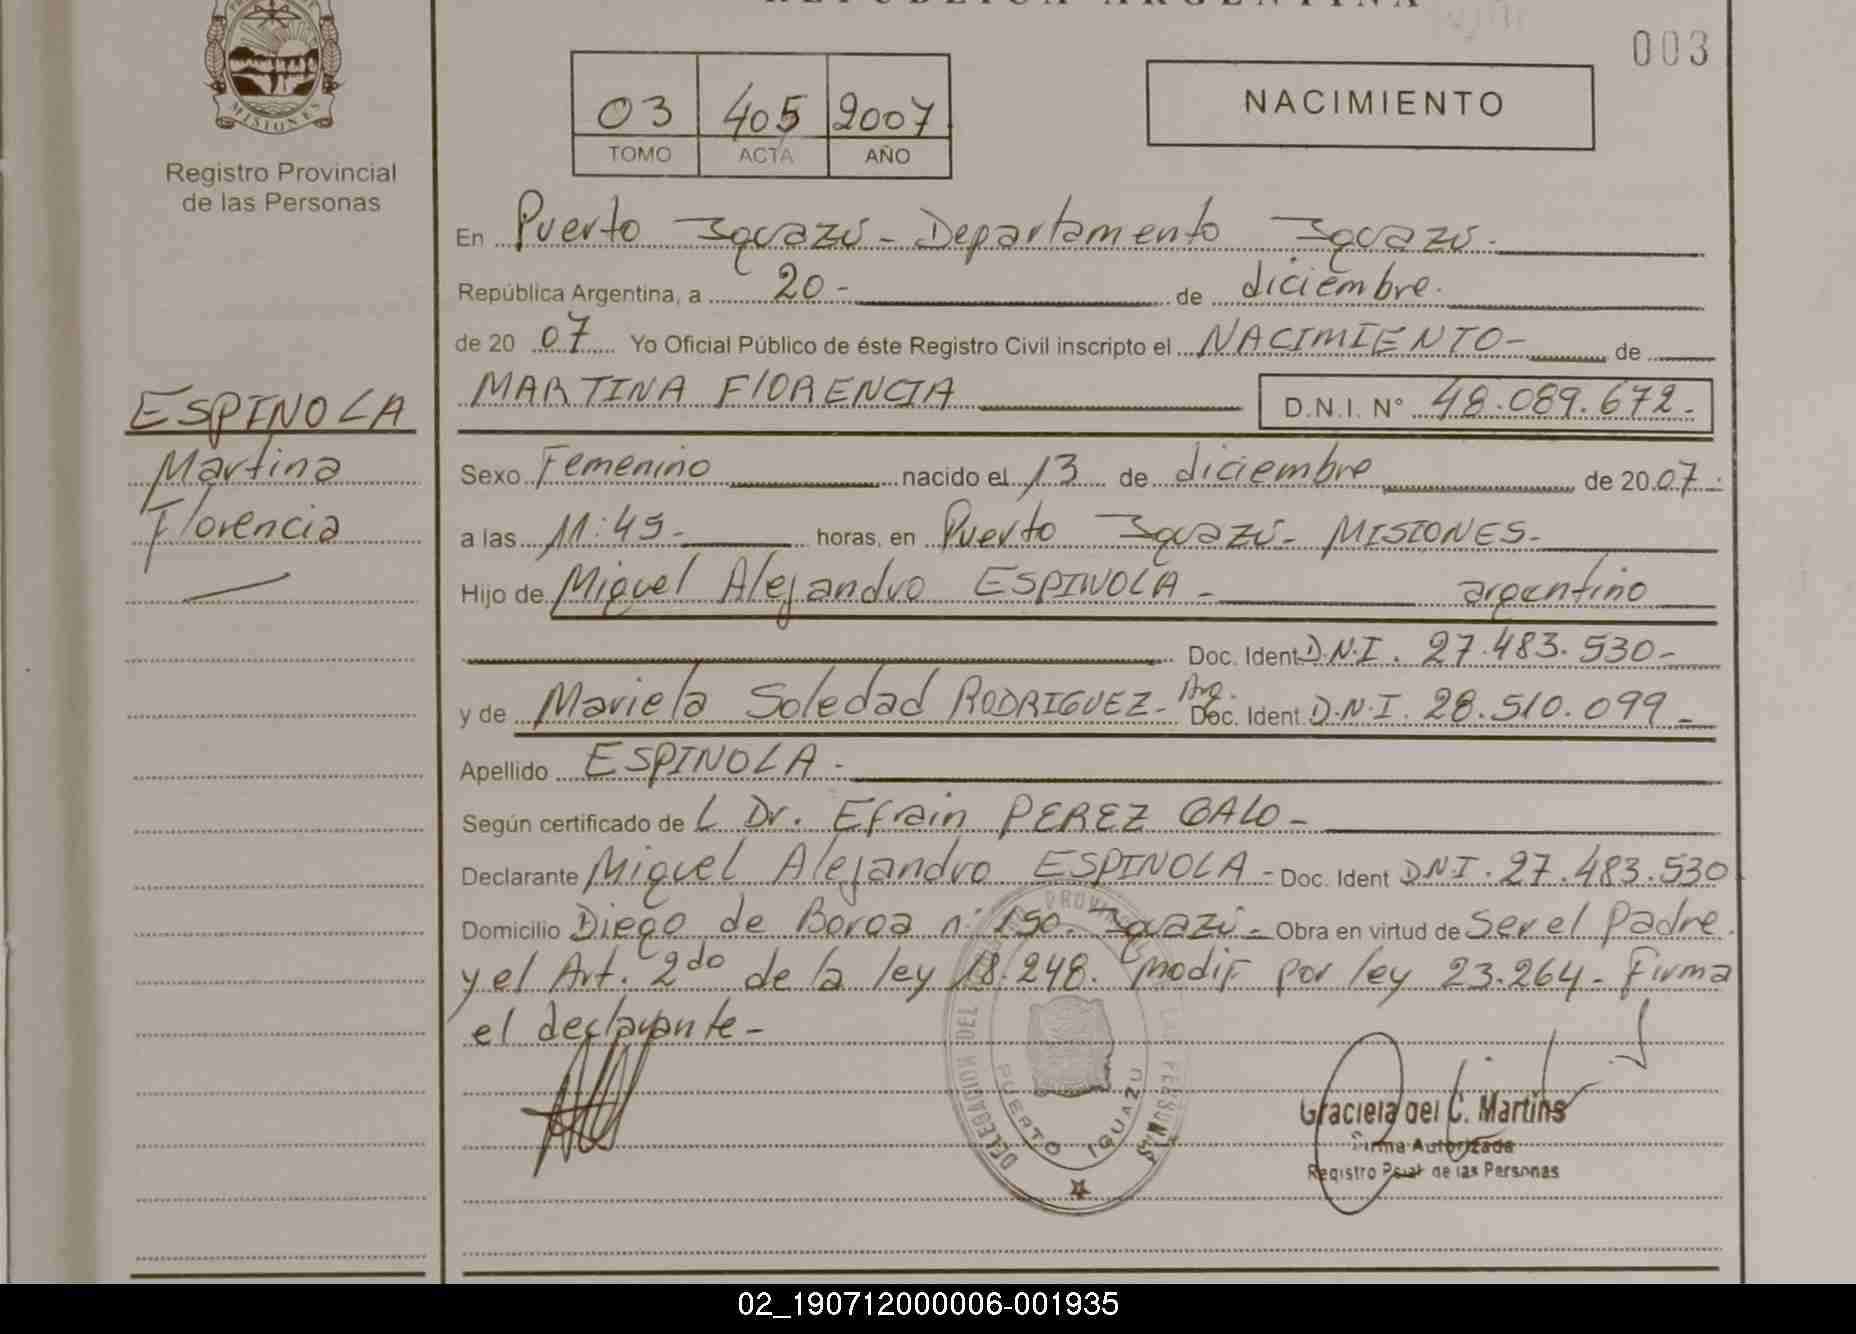 REPÚBLICA ARGENTINA
003
MISIONES
Registro Provincial
de las Personas
03 405 2007
TOMO ACTA AÑO
NACIMIENTO
En Puerto Iguazú - Departamento Iguazú.
República Argentina, a 20 - de diciembre.
de 20 07 Yo Oficial Público de éste Registro Civil inscripto el NACIMIENTO - de
MARTINA FlORENCIA D.N.I. N° 48.089.672.-
ESPINOLA
Martina
Florencia
Sexo Femenino nacido el 13 de diciembre de 20 07.
a las 11:45.- horas, en Puerto Iguazú - MISIONES.-
Hijo de Miguel Alejandro ESPINOLA - argentino
Doc. Ident D.N.I. 27.483.530-
y de Mariela Soledad RODRIGUEZ - Arg. Doc. Ident. D.N.I. 28.510.099 -
Apellido ESPINOLA -
Según certificado de L Dr. Efrain PEREZ GALO -
Declarante Miguel Alejandro ESPINOLA - Doc. Ident DNI. 27.483.530
Domicilio Diego de Boroa n° 150. Iguazú - Obra en virtud de Ser el Padre.
y el Art. 2do de la ley 18.248. modif por ley 23.264 - Firma
el declarante -
DELEGACION DEL
PERSONAS
PUERTO IGUAZU
Graciela del C. Martins
Firma Autorizada
Registro Pcial de las Personas
02_190712000006-001935